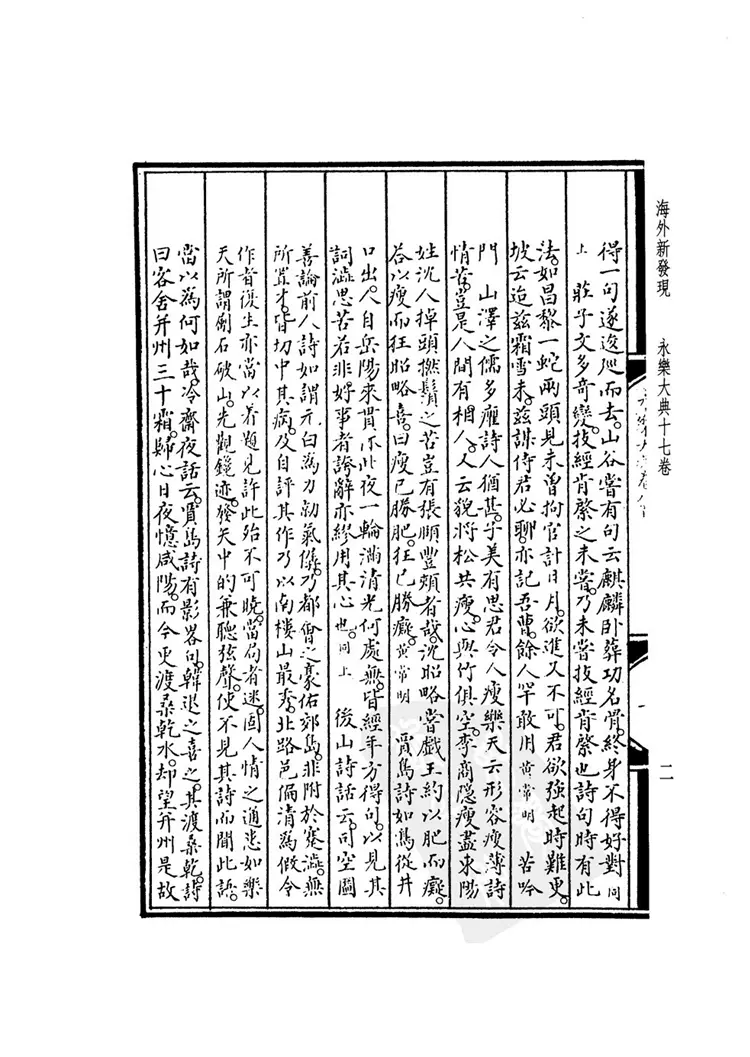 海外新發現 永樂大典十七卷
二
得一句遂逡巡而去。山谷嘗有句云麒麟卧葬功名骨。終身不得好對同
上 莊子文多奇變。技經肯綮之未嘗。乃未嘗技經肯綮也詩句時有此
法。如昌黎一蛇兩頭見未曾拘官計日月。欲進又不可。君欲強起時難更。
坡云迨茲霜雪未。茲謀待君必聊。亦記吾曹。餘人罕敢用黃常明 苦吟
門 山澤之儒多癯詩人猶甚。子美有思君令人瘦樂天云形容瘦薄詩
情苦。豈是人間有相人。人云貌將松共瘦。心與竹俱空。李商隱瘦盡東陽
姓沈人掉頭撚鬚之苦豈有張頤豐頰者哉。沈昭略嘗戲王約以肥而癡。
答以瘦而狂昭略喜。曰瘦已勝肥。狂已勝癡。黃常明 賈島詩如鳥從井
口出。人自岳陽來貫休此夜一輪滿清光何處無。皆經年方得句。以見其
詞澁思苦若非好事者誇辭亦繆用其心也。同上 後山詩話云。司空圖
善論前人詩如謂元白為力勍氣孱。乃都會之豪估郊島。非附於蹇澁。無
所置才。皆切中其病。及自評其作乃以南樓山最秀。北路邑偏清為假令
作者復生亦當以著題見許此殆不可曉。當局者迷。固人情之通患如樂
天所謂劚石破山。先觀鏡迹。發矢中的兼聽弦聲。使不見其詩而聞此語。
當以為何如哉。冷齋夜話云。賈島詩有影畧句。韓退之喜之。其渡桑乾。詩
曰客舍并州三十霜。歸心日夜憶咸陽。而今更渡桑乾水。却望并州是故